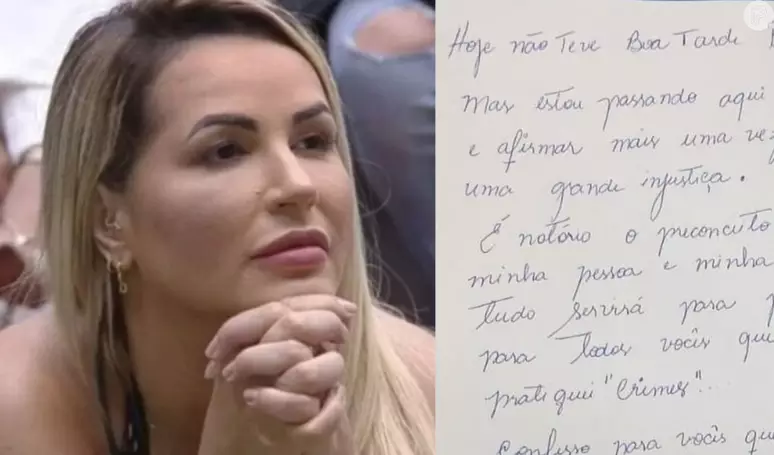 Hoje não Teve Boa Tarde
Mas estou passando aqui
e afirmar mais uma vez
uma grande injustiça.
É notório o preconceito
minha pessoa e minha
tudo servirá para
para todos vocês que
pratiquei "crimes"...
Confesso para vocês que